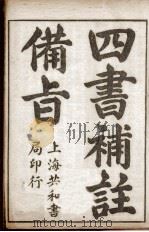 四書補註
備旨
上海共和書
局印行
mtoou.info